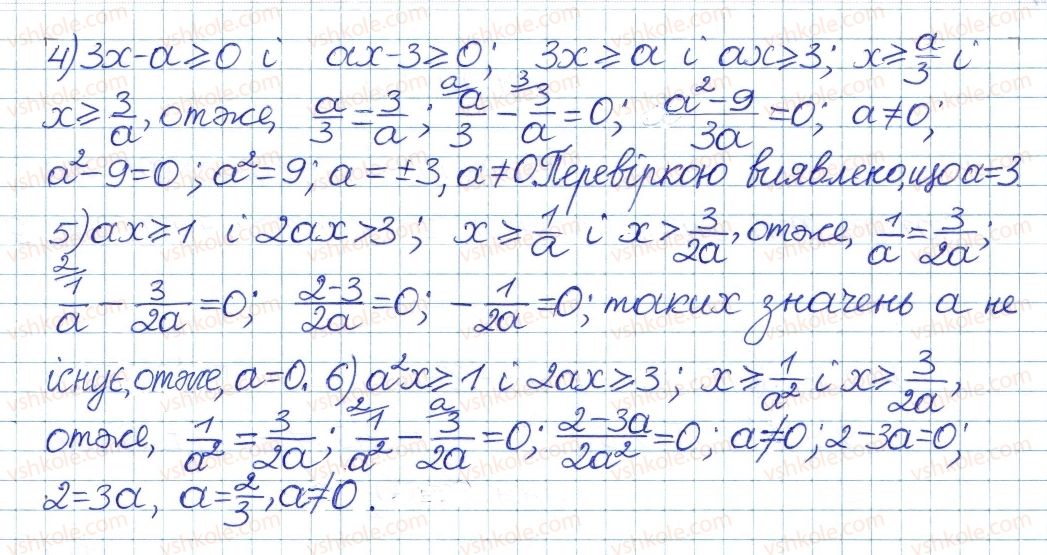 4) 3x-a≥0 і ax-3≥0; 3x≥a і ax≥3; x≥a/3 і
x≥3/a, отже, a/3=3/a; a/3 - 3/a =0; (a²-9)/3a=0; a≠0;
a²-9=0; a²=9; a=±3, a≠0. Перевіркою виявлено, що a=3.
5) ax≥1 і 2ax>3; x≥1/a і x>3/2a, отже, 1/a=3/2a;
1/a - 3/2a =0; (2-3)/2a=0; -1/2a=0; таких значень a не
існує, отже, a=0. 6) a²x≥1 і 2ax≥3; x≥1/a² і x≥3/2a,
отже, 1/a²=3/2a; 1/a² - 3/2a =0; (2-3a)/2a²=0; a≠0; 2-3a=0;
2=3a, a=2/3, a≠0.